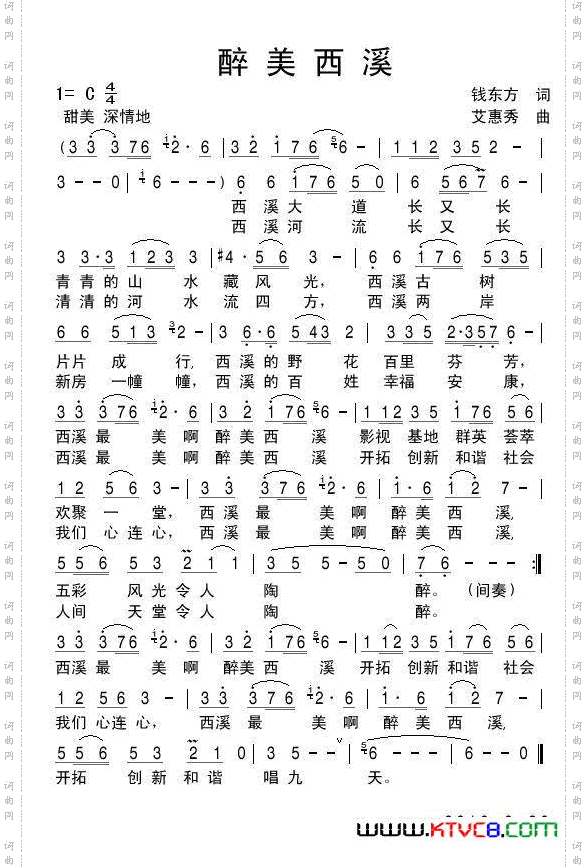 醉美西溪
1= C 4/4 钱东方 词
甜美 深情地 艾惠秀 曲
(3 3 3 76 2· 6 | 3 2 1 76 6 - | 1 1 2 3 5 2 - |
3 - - 0 | 6 - - - ) 6 6 1 76 5 0 | 6 5 67 6 - |
西 溪 大 道 长 又 长
西 溪 河 流 长 又 长
3 3·3 1 2 3 3 - | #4· 5 6 3 - | 6 6 1 76 5 35 |
青 青 的 山 水 藏 风 光, 西 溪 古 树
清 清 的 河 水 流 四 方, 西 溪 两 岸
6 6 5 1 3 2 - | 3 6·6 5 43 2 | 3 3 5 2·357 6 - |
片 片 成 行, 西 溪 的 野 花 百 里 芬 芳,
新 房 一 幢 幢, 西 溪 的 百 姓 幸 福 安 康,
3 3 3 76 2· 6 | 3 2 1 76 6 - | 1 12 35 1 76 56 |
西 溪 最 美 啊 醉 美 西 溪 影视 基地 群英 荟萃
西 溪 最 美 啊 醉 美 西 溪 开拓 创新 和谐 社会
1 2 5 6 3 - | 3 3 3 76 2· 6 | 1· 6 1 2 7 - |
欢 聚 一 堂, 西 溪 最 美 啊 醉 美 西 溪,
我们 心连 心, 西 溪 最 美 啊 醉 美 西 溪,
5 5 6 5 3 2 1 1 | 3 5 5 - 5 0 | 7 6 - - :||
五 彩 风 光 令 人 陶 醉。 (间奏)
人 间 天 堂 令 人 陶 醉。
3 3 3 76 2· 6 | 3 2 1 76 6 - | 1 12 35 1 76 56 |
西 溪 最 美 啊 醉 美 西 溪 开拓 创新 和谐 社会
1 2 5 6 3 - | 3 3 3 76 2· 6 | 1· 6 1 2 7 - |
我们 心连 心, 西 溪 最 美 啊 醉 美 西 溪,
5 5 6 5 3 2 1 0 | 3· 5 5 - - | 6 - - - | 6 0 0 0 ||
开 拓 创 新 和 谐 唱 九 天。
www.KTVC8.com
词曲网